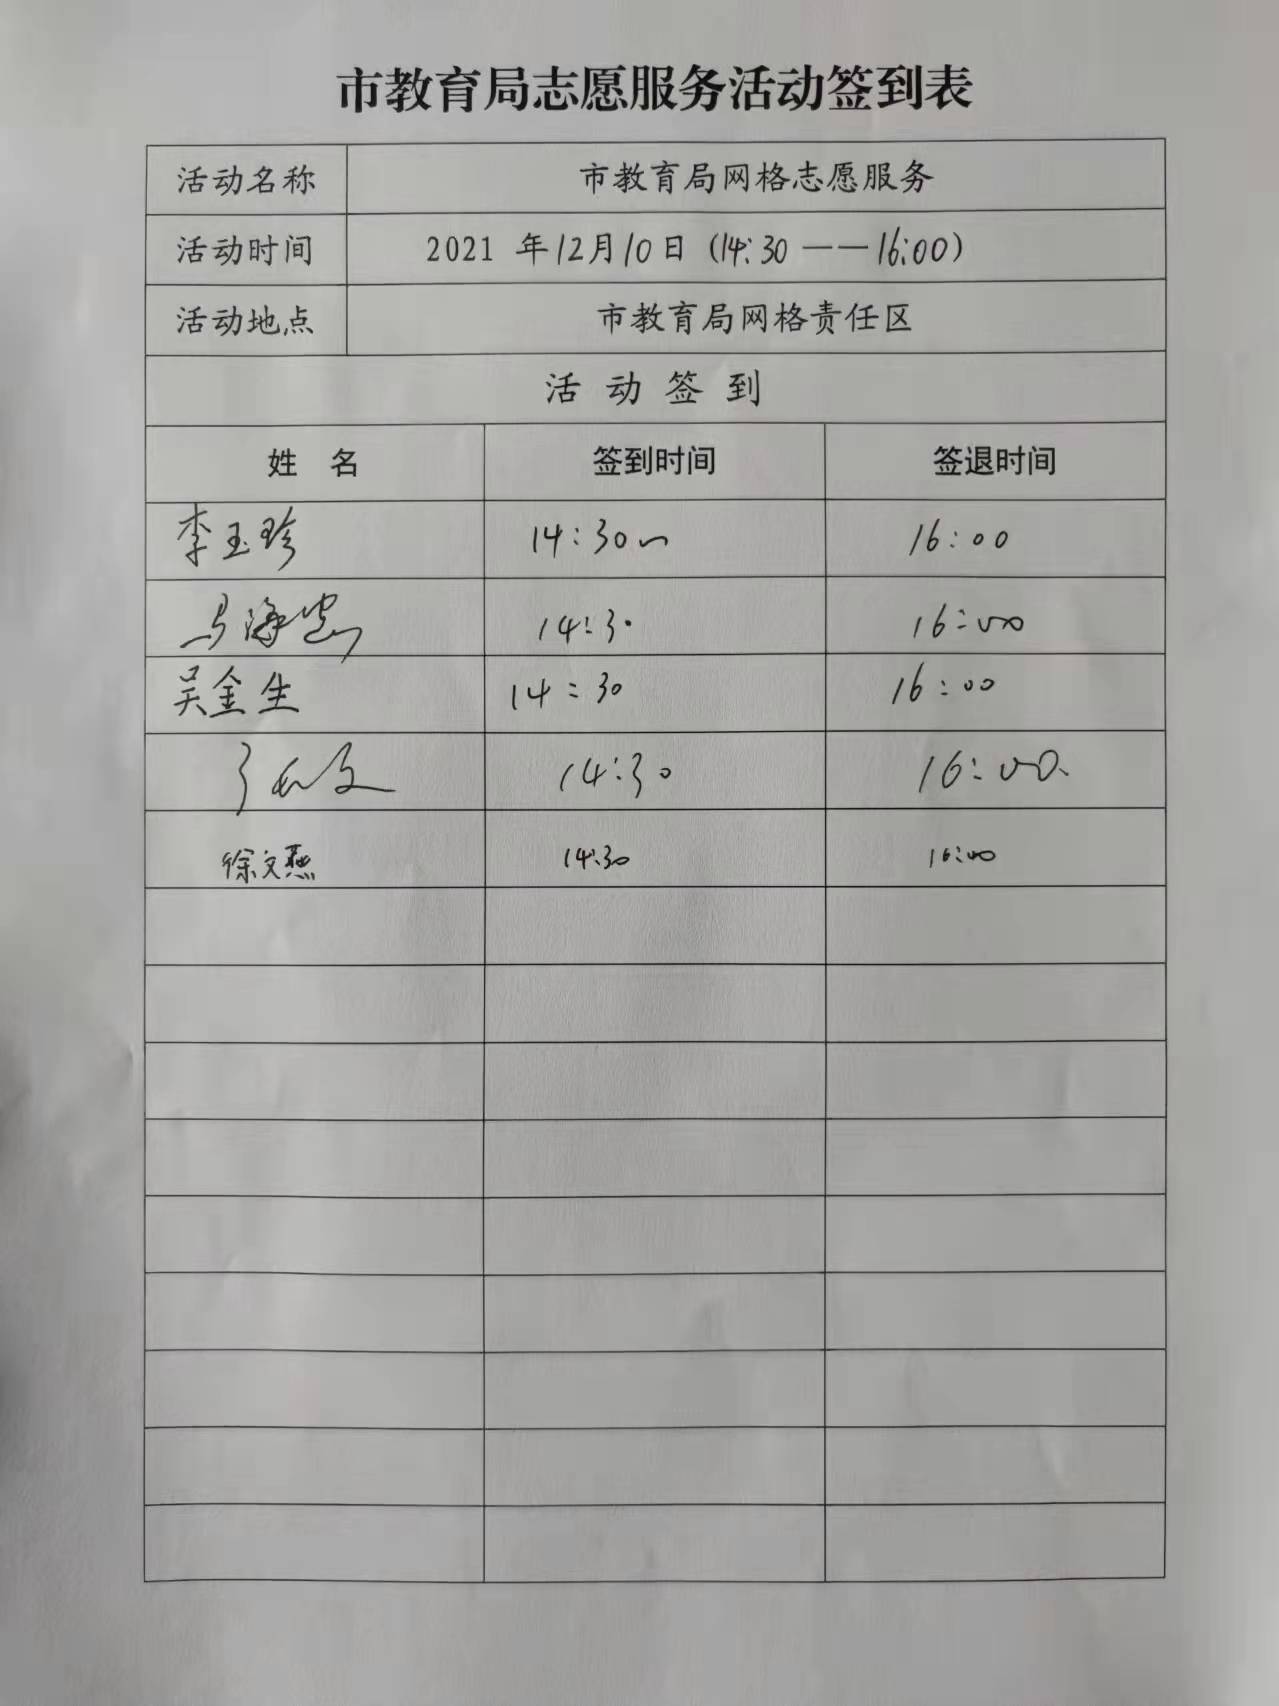 市教育局志愿服务活动签到表
活动名称 市教育局网格志愿服务
活动时间 2021 年12月10日 (14:30 —— 16:00)
活动地点 市教育局网格责任区
活 动 签 到
姓 名 签到时间 签退时间
李玉珍 14:30 16:00
马海 14:30 16:00
吴金生 14:30 16:00
14:30 16:00
徐文燕 14:30 16:00